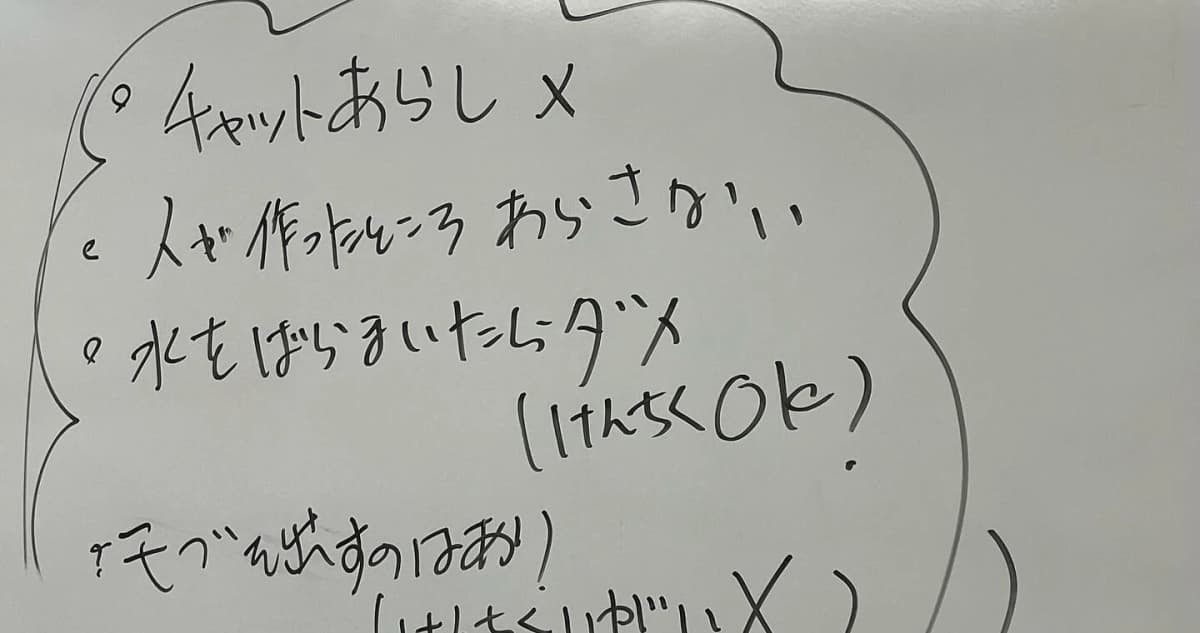 チャットあらし ×
人が作ったところあらさない
水をばらまいたらダメ
(けんちくOK)
モブを出すのは
(けんちくいがい×)